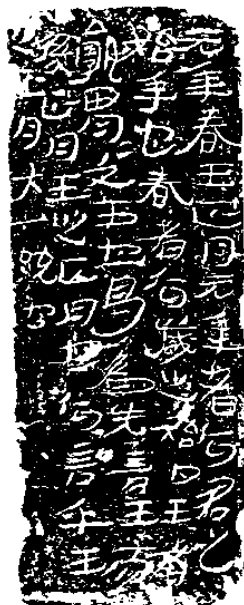 元年春王正月元年者何君之
始年也春者何歲之始也王者
孰胃胃文王也曷為先言王而
後正月王正月也何言乎王
正月大一統也